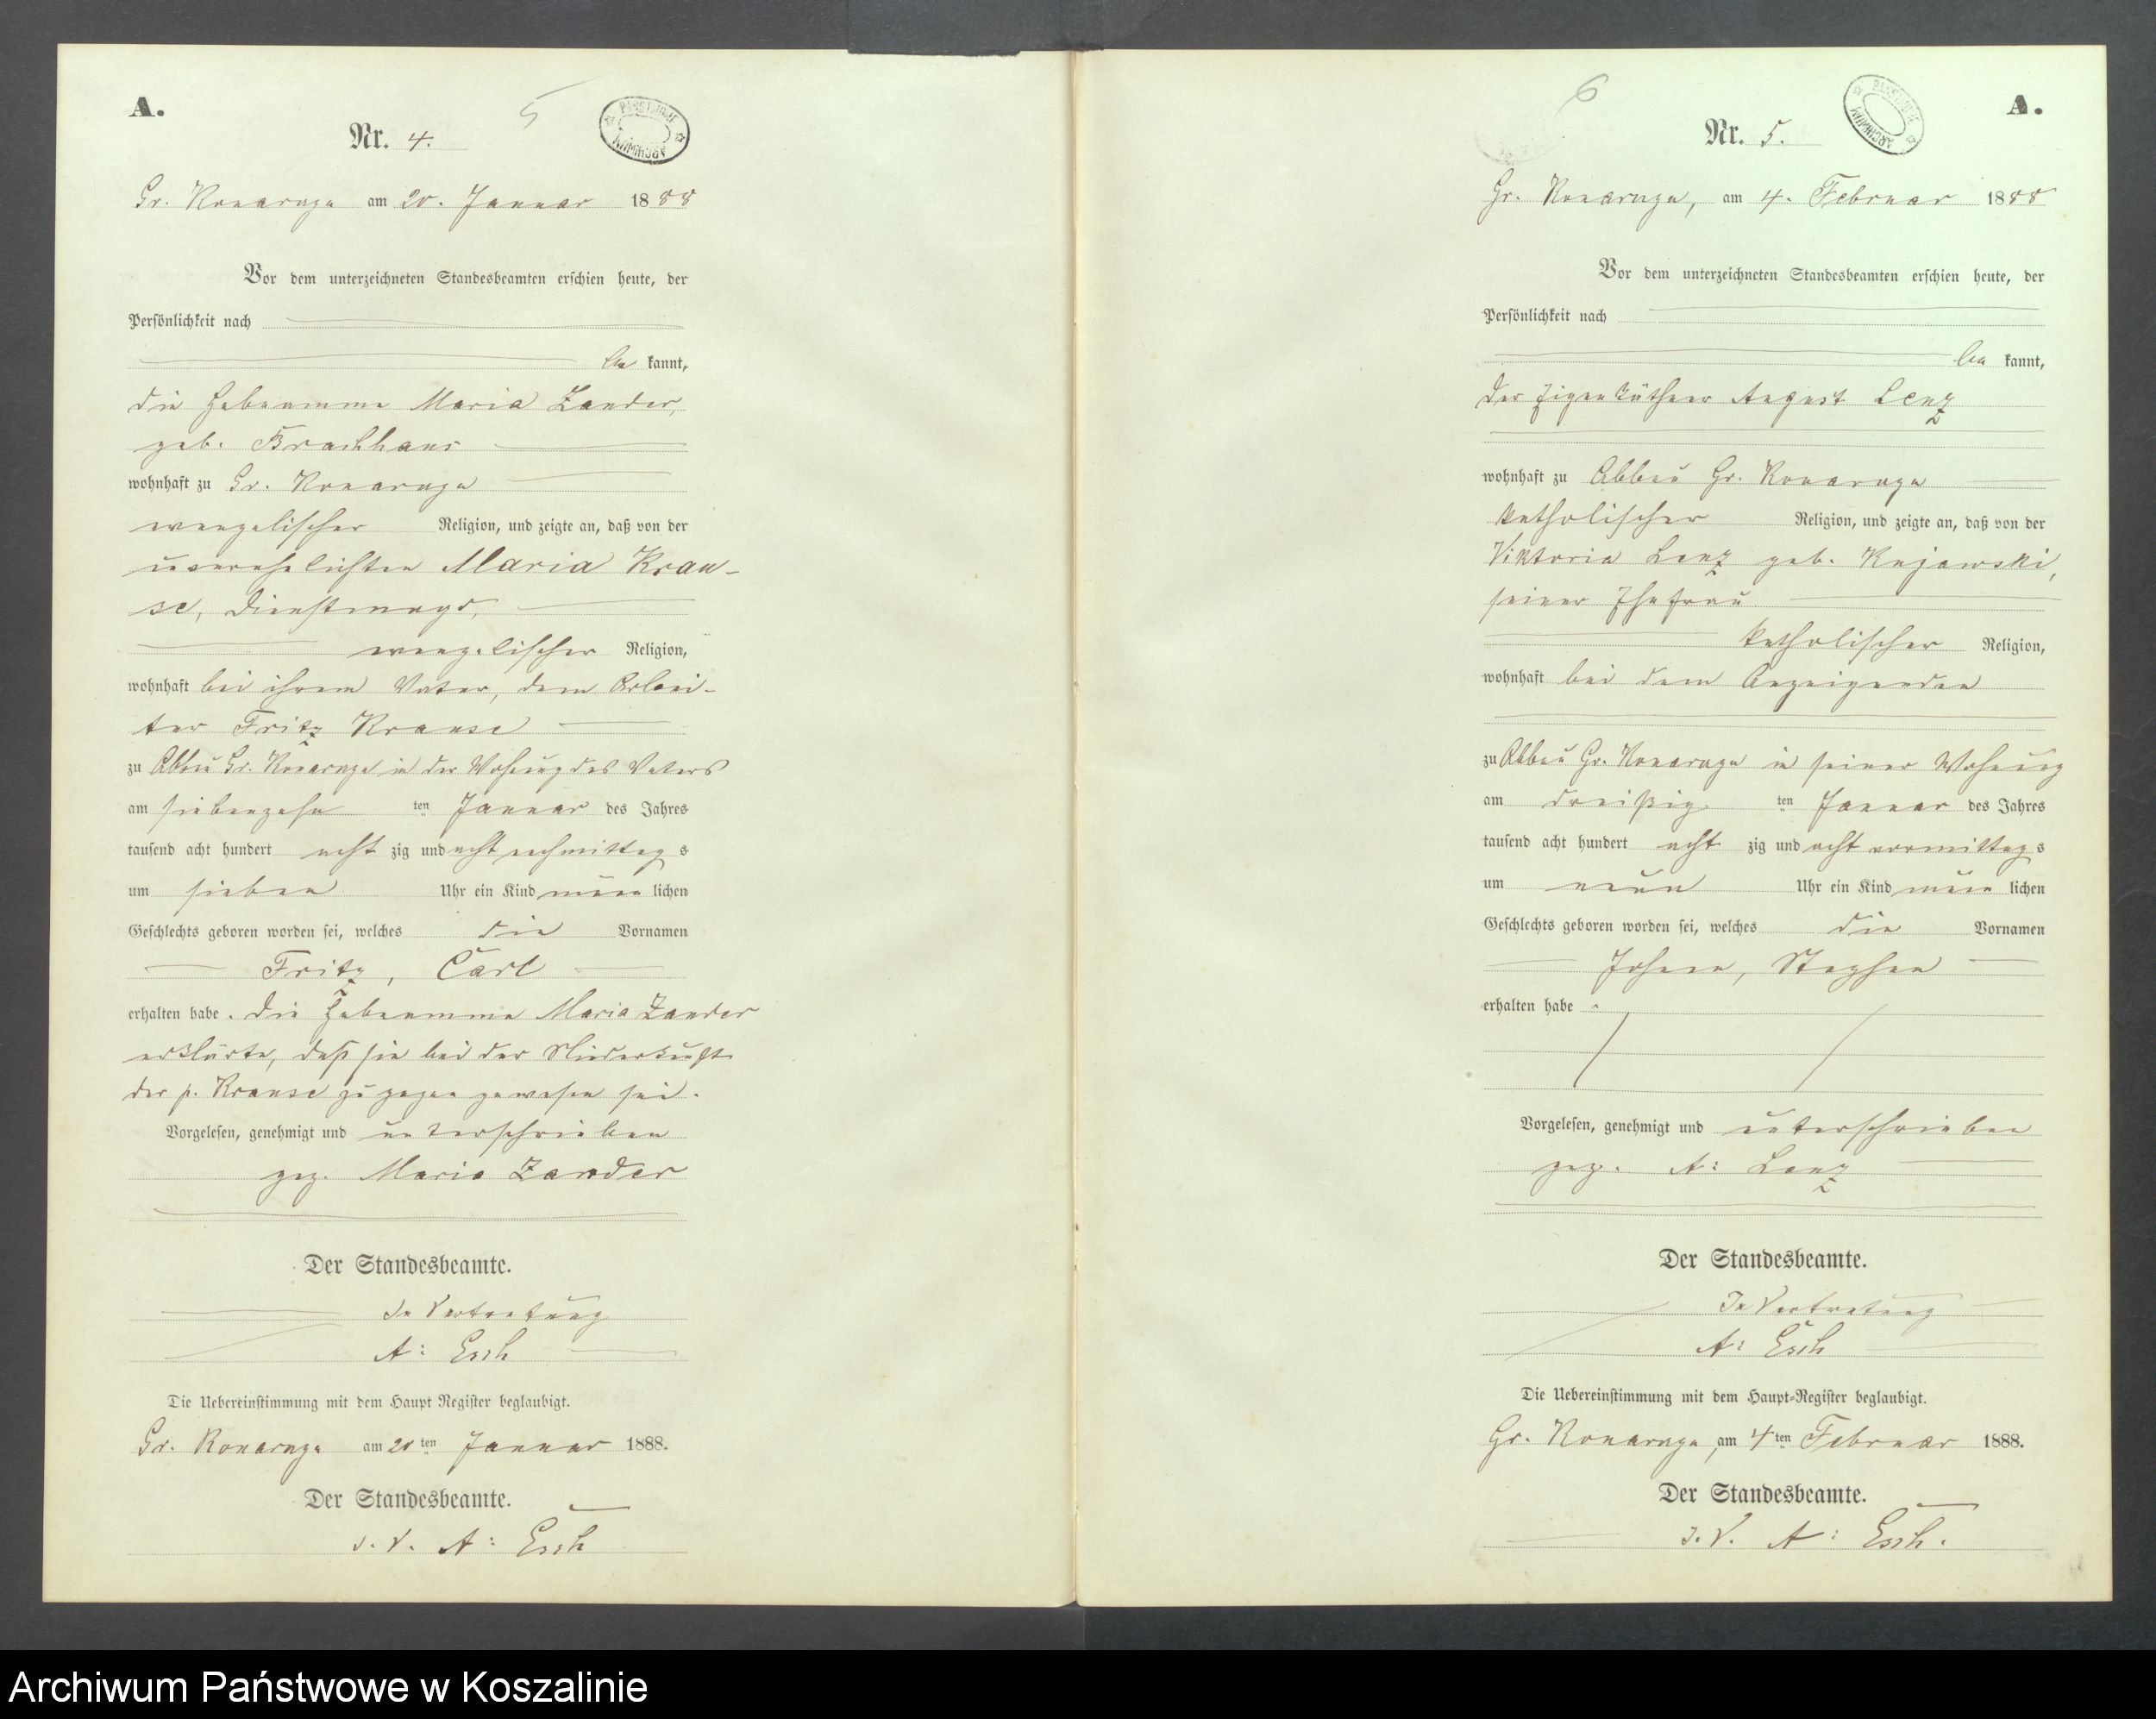 A.
5
PAŃSTWOWE ARCHIWUM
Nr. 4.
Gr. Konarczyn am 20. Januar 1888
Vor dem unterzeichneten Standesbeamten erschien heute, der
Persönlichkeit nach
be kannt,
die Hebeamme Maria Zander,
geb. Brachhaus
wohnhaft zu Gr. Konarczyn
evangelischer Religion, und zeigte an, daß von der
unverehelichten Maria Krau-
se, Dienstmagd,
evangelischer Religion,
wohnhaft bei ihrem Vater, dem Arbei-
ter Fritz Krause
zu Abbau Gr. Konarczyn in der Wohnung des Vaters
am siebenzehn ten Januar des Jahres
tausend acht hundert acht zig und acht nachmittag s
um sieben Uhr ein Kind männ lichen
Geschlechts geboren worden sei, welches die Vornamen
Fritz, Carl
erhalten habe. Die Hebeamme Maria Zander
erklärte, daß sie bei der Niederkunft
der p. Krause zugegen gewesen sei.
Vorgelesen, genehmigt und unterschrieben
gez. Maria Zander
Der Standesbeamte.
In Vertretung
A: Esch
Die Uebereinstimmung mit dem Haupt Register beglaubigt.
Gr. Konarczyn am 20 ten Januar 1888.
Der Standesbeamte.
I. V. A: Esch
6
A.
PAŃSTWOWE ARCHIWUM
Nr. 5.
Gr. Konarczyn, am 4. Februar 1888
Vor dem unterzeichneten Standesbeamten erschien heute, der
Persönlichkeit nach
be kannt,
der Eigenkäthner August Lenz
wohnhaft zu Abbau Gr. Konarczyn
katholischer Religion, und zeigte an, daß von der
Viktoria Lenz geb. Kujawski,
seiner Ehefrau
katholischer Religion,
wohnhaft bei dem Anzeigenden
zu Abbau Gr. Konarczyn in seiner Wohnung
am dreißig ten Januar des Jahres
tausend acht hundert acht zig und acht vormittag s
um neun Uhr ein Kind männ lichen
Geschlechts geboren worden sei, welches die Vornamen
Johann, Stephan
erhalten habe.
Vorgelesen, genehmigt und unterschrieben
gez. A: Lenz
Der Standesbeamte.
In Vertretung
A: Esch
Die Uebereinstimmung mit dem Haupt-Register beglaubigt.
Gr. Konarczyn, am 4 ten Februar 1888.
Der Standesbeamte.
I. V. A: Esch.
Archiwum Państwowe w Koszalinie